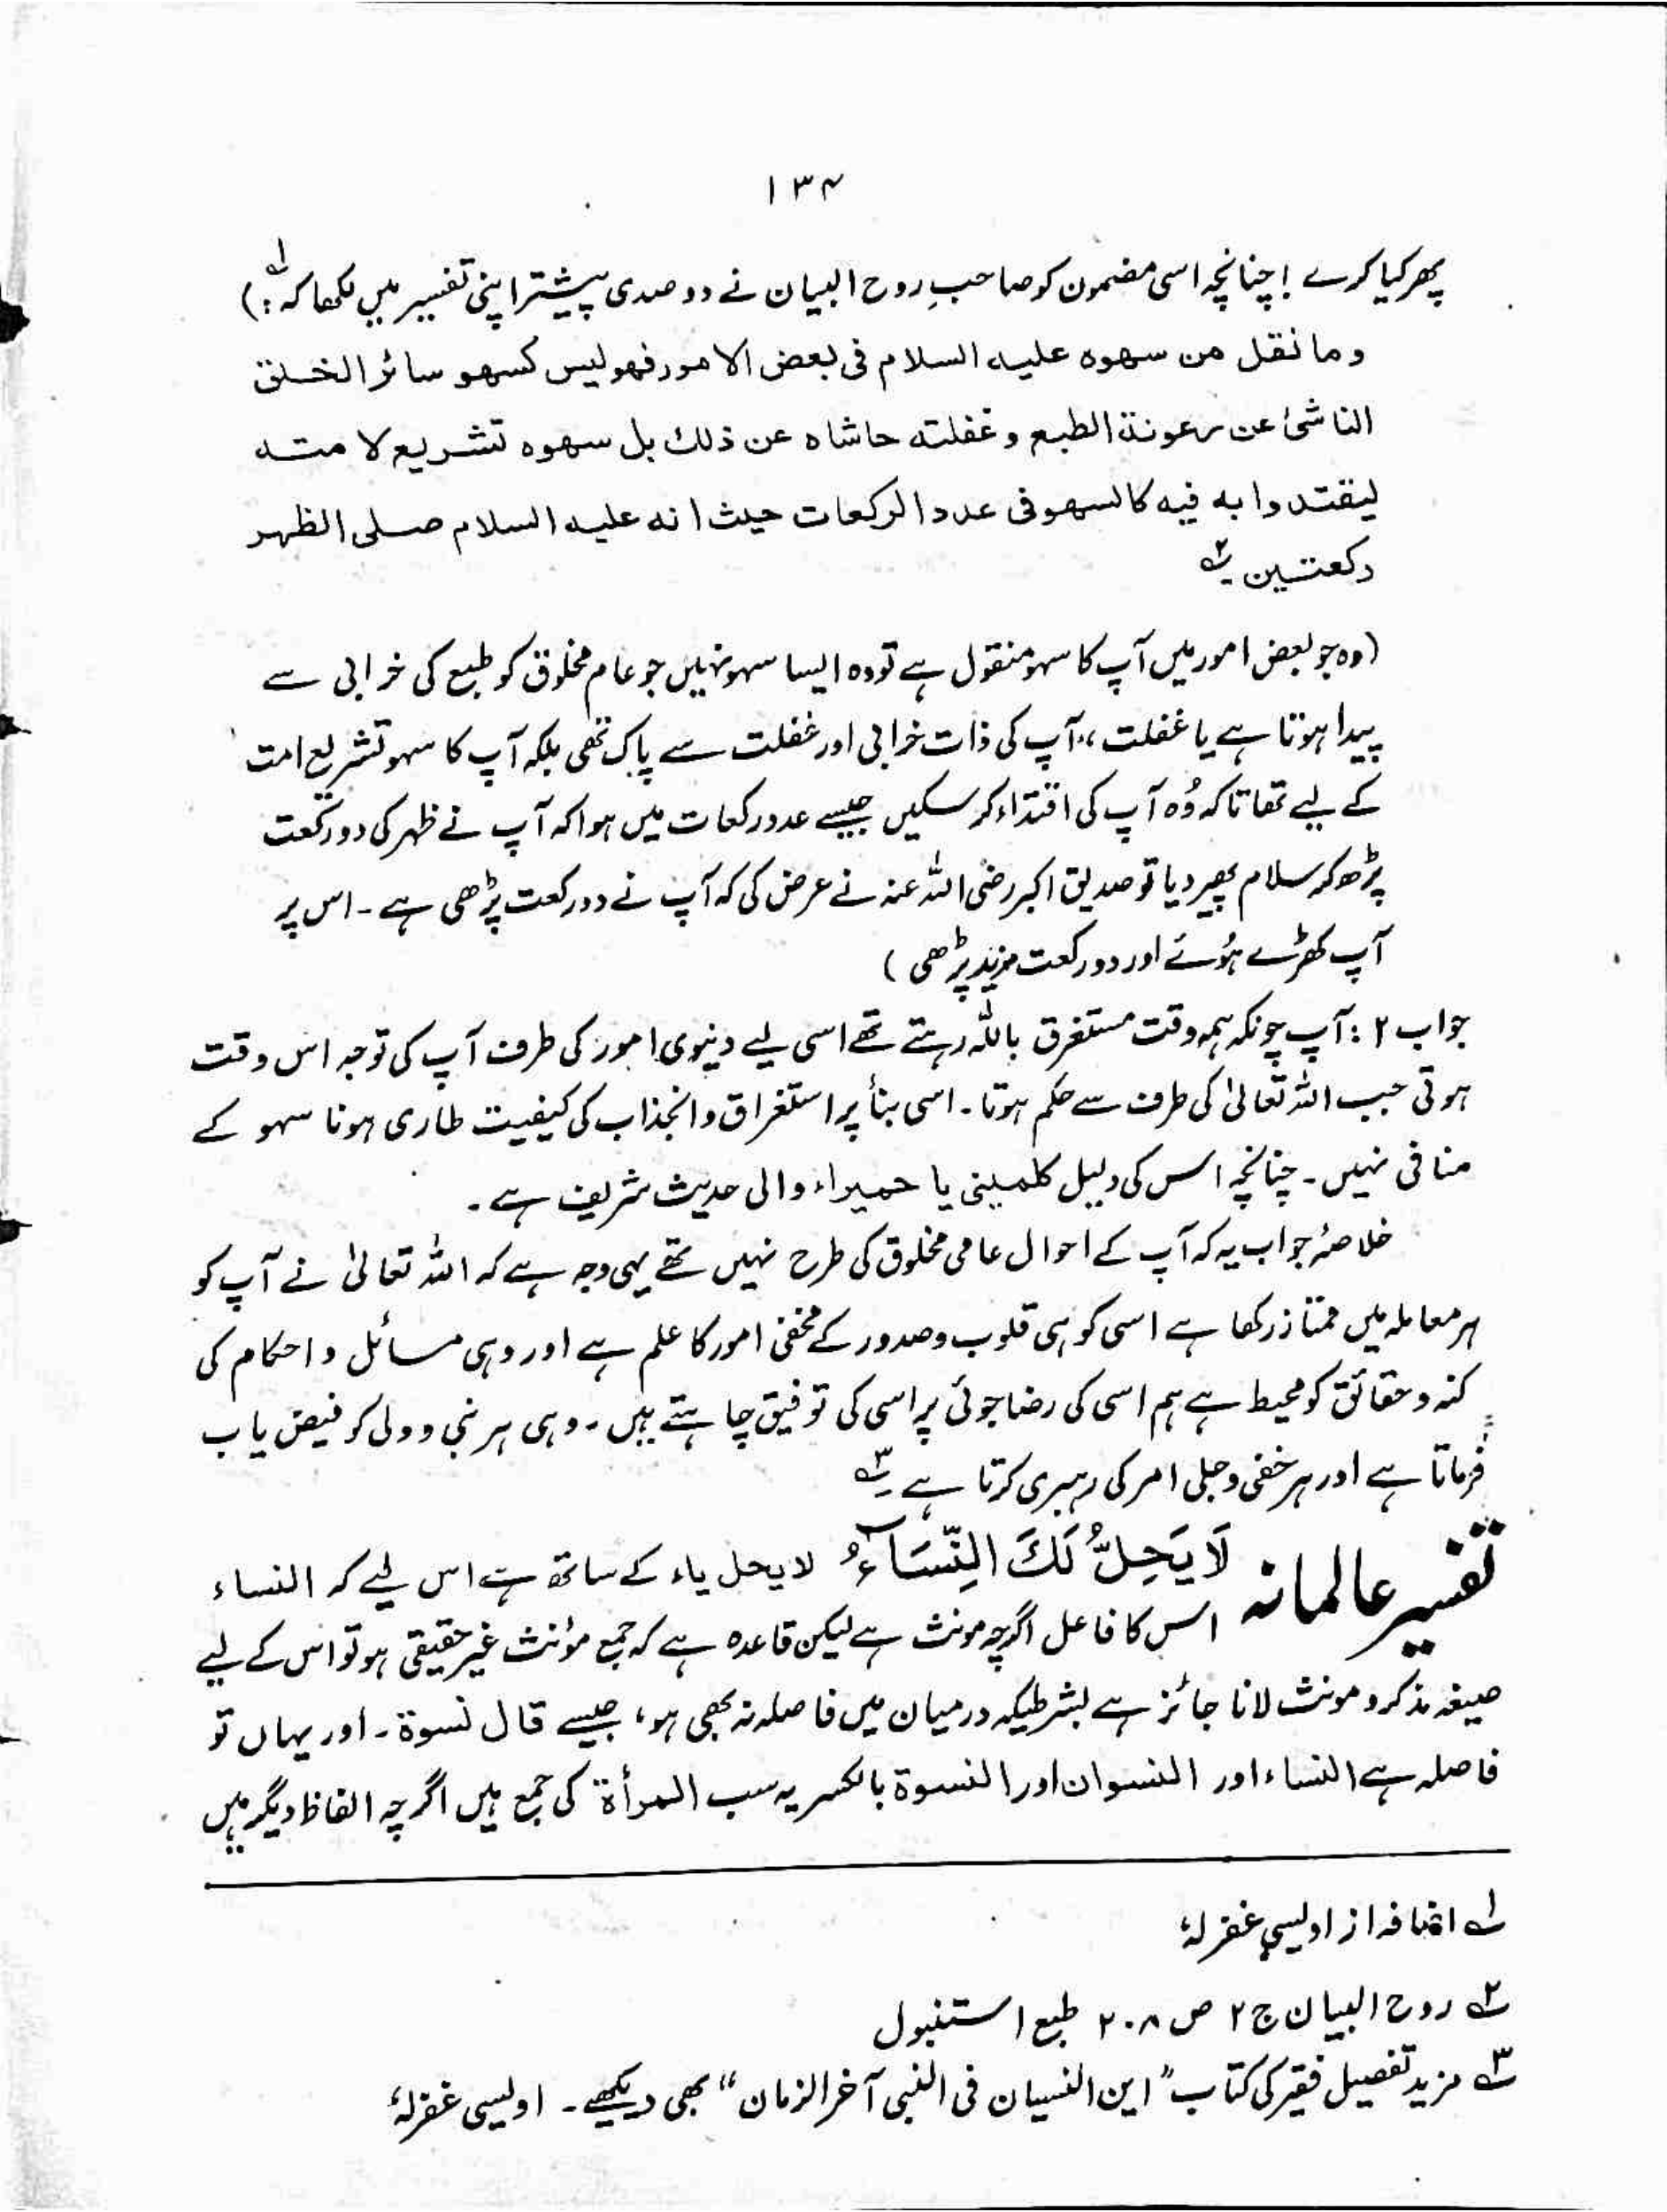 ۱۳۴
پھر کیا کرے! چنانچہ اسی مضمون کو صاحبِ روح البیان نے دو صدی پیشتر اپنی تفسیر میں لکھا کہ:)۱؎
وما نقل من سهوه عليه السلام فى بعض الامور فهو ليس كسهو سائر الخلق
الناشئ عن رعونة الطبع وغفلته حاشاه عن ذلك بل سهوه تشريع لامته
ليقتدوا به فيه كالسهو فى عدد الركعات حيث انه عليه السلام صلى الظهر
ركعتين ۲؎
(وہ جو بعض امور میں آپ کا سہو منقول ہے تو وہ ایسا سہو نہیں جو عام مخلوق کو طبع کی خرابی سے
پیدا ہوتا ہے یا غفلت، آپ کی ذات خرابی اور غفلت سے پاک تھی بلکہ آپ کا سہو تشریع امت
کے لیے تھا تاکہ وُہ آپ کی اقتداء کر سکیں جیسے عدد رکعات میں ہوا کہ آپ نے ظہر کی دو رکعت
پڑھ کر سلام پھیر دیا تو صدیق اکبر رضی اللہ عنہ نے عرض کی کہ آپ نے دو رکعت پڑھی ہے۔ اس پر
آپ کھڑے ہُوئے اور دو رکعت مزید پڑھی)
جواب ۲: آپ چونکہ ہمہ وقت مستغرق باللہ رہتے تھے اسی لیے دنیوی امور کی طرف آپ کی توجہ اس وقت
ہوتی جب اللہ تعالیٰ کی طرف سے حکم ہوتا۔ اسی بنأ پر استغراق و انجذاب کی کیفیت طاری ہونا سہو کے
منافی نہیں۔ چنانچہ اس کی دلیل کلمینی یا حمیراء والی حدیث شریف ہے۔
خلاصۂ جواب یہ کہ آپ کے احوال عامی مخلوق کی طرح نہیں تھے یہی وجہ ہے کہ اللہ تعالیٰ نے آپ کو
ہر معاملہ میں ممتاز رکھا ہے اسی کو ہی قلوب و صدور کے مخفی امور کا علم ہے اور وہی مسائل و احکام کی
کنہ و حقائق کو محیط ہے ہم اسی کی رضا جوئی پر اسی کی توفیق چاہتے ہیں۔ وہی ہر نبی و ولی کو فیض یاب
فرماتا ہے اور ہر خفی و جلی امر کی رہبری کرتا ہے ۳؎
تفسیر عالمانہ لَا يَحِلُّ لَكَ النِّسَآءُ لا یحل یاء کے ساتھ ہے اس لیے کہ النساء
اس کا فاعل اگرچہ مونث ہے لیکن قاعدہ ہے کہ جمع مؤنث غیر حقیقی ہو تو اس کے لیے
صیغہ مذکر و مونث لانا جائز ہے بشرطیکہ درمیان میں فاصلہ نہ بھی ہو، جیسے قال نسوة۔ اور یہاں تو
فاصلہ ہے النساء اور النسوان اور النسوة بالکسر یہ سب المرأة کی جمع ہیں اگرچہ الفاظ دیگر ہیں
۱؎ اضافہ از اویسی غفرلہٗ
۲؎ روح البیان ج ۲ ص ۲۰۸ طبع استنبول
۳؎ مزید تفصیل فقیر کی کتاب "این النسیان فی النبی آخر الزمان" بھی دیکھیے۔ اویسی غفرلہٗ